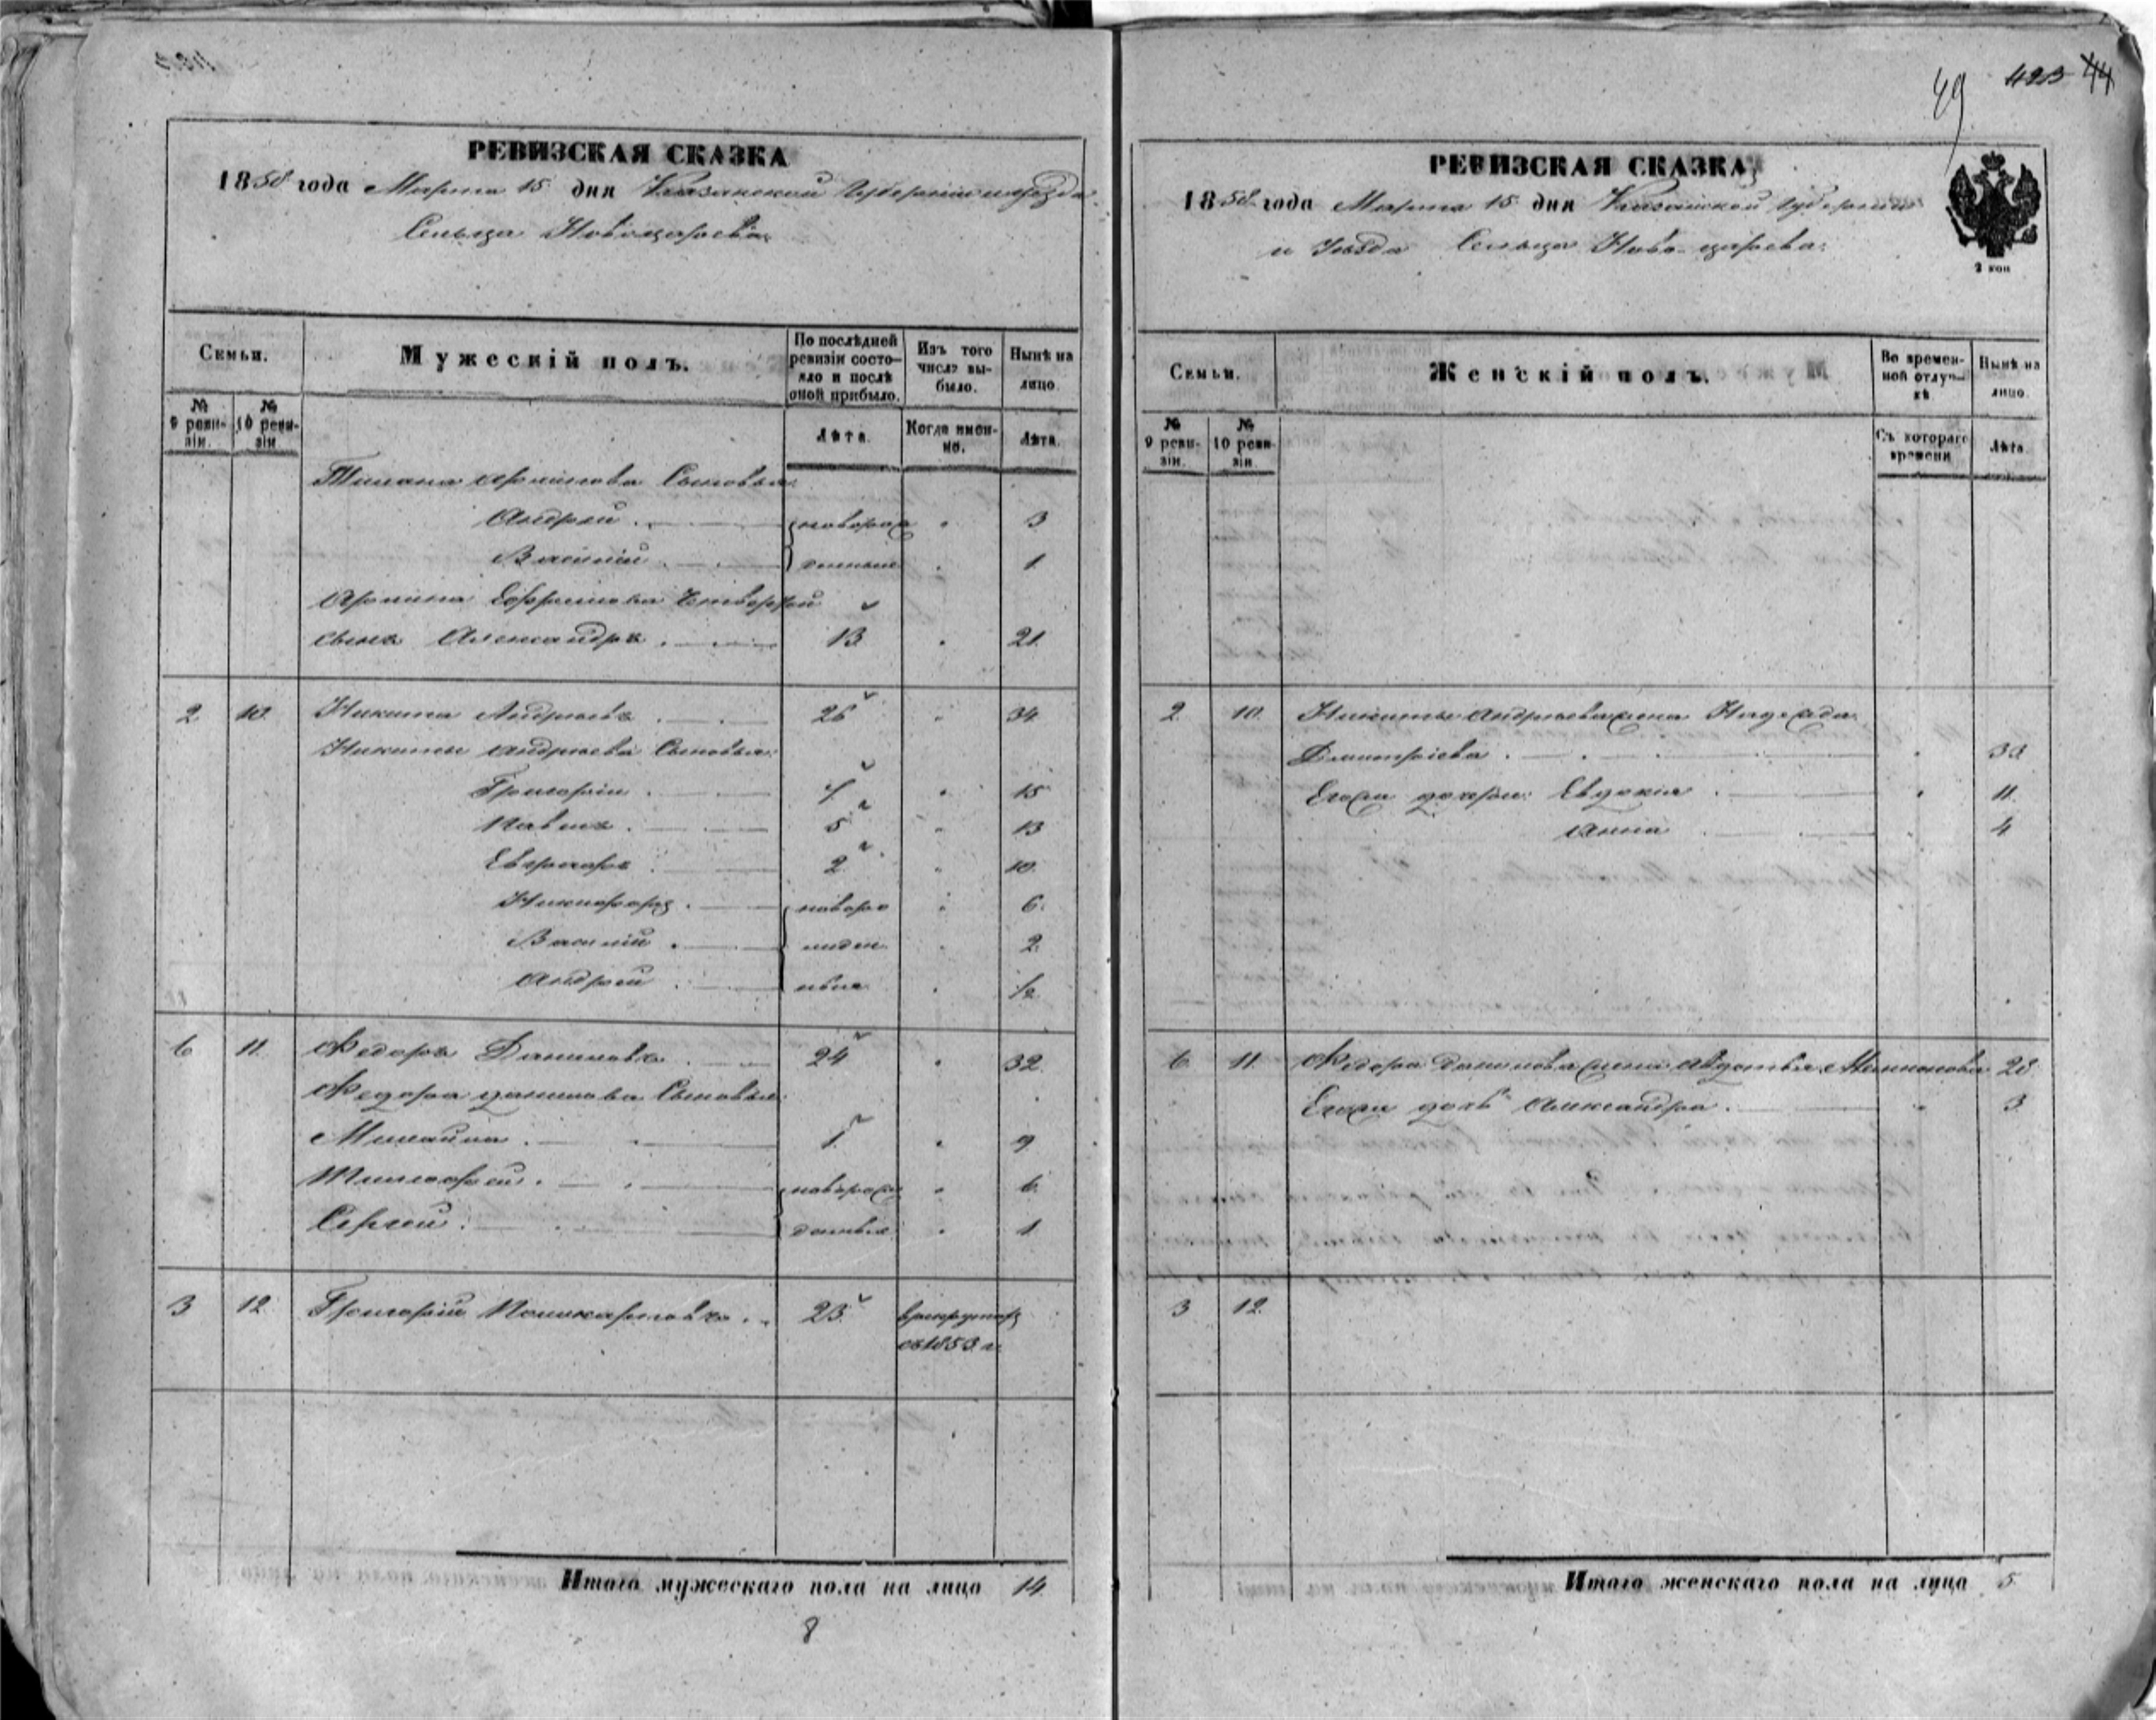 49 423 44
РЕВИЗСКАЯ СКАЗКА
1858 года Марта 15 дня Казанской Губерніи и уѣзда
Сельца Новоцарева
Семьи.
Мужескій полъ.
По послѣдней ревизіи состояло и послѣ оной прибыло.
Изъ того числа выбыло.
Нынѣ на лицо.
№ 9 ревизіи.
№ 10 ревизіи
Лѣта.
Когда именно.
Лѣта.
сыновья
Андрей новорож 3
Василій денные 1
сынъ Александръ 13 21
2 10 Никита Андреевъ 26 34
Никиты Андреева Сыновья:
Григорій 7 15
Павелъ 5 13
Евграфъ 2 10
Никифоръ новоро 6
Василій жден 2
Андрей ные 1/2
6 11 Федоръ Даниловъ 24 32
Федора Данилова Сыновья:
Михаила 1 9
Тимофей новорож 6
Сергей денные 1
3 12 Григорій Поликарповъ 23 в рекруты
съ 1853 г.
Итого мужескаго пола на лицо 14
8
РЕВИЗСКАЯ СКАЗКА
1858 года Марта 15 дня Казанской Губерніи
и Уѣзда Сельца Ново-царева:
2 коп
Семьи.
Женскій полъ.
Во временной отлучкѣ
Нынѣ на лицо.
№ 9 ревизіи.
№ 10 ревизіи.
Съ котораго времени
Лѣта.
2 10 Никиты Андреева жена Надежда
Дмитріева 33
Его же дочери: Евдокія 11
Анна 4
6 11 Федора Данилова жена Авдотья 28
Его же дочь Александра 3
3 12
Итого женскаго пола на лицо 5